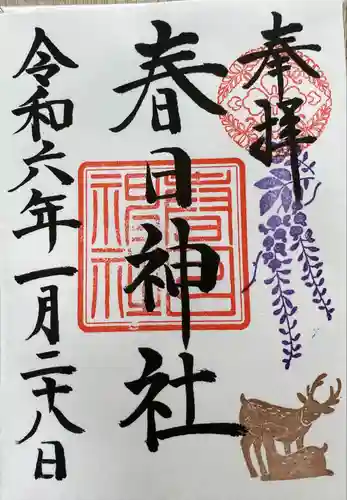 奉拝
春日神社
春日
神社
令和六年一月二十八日